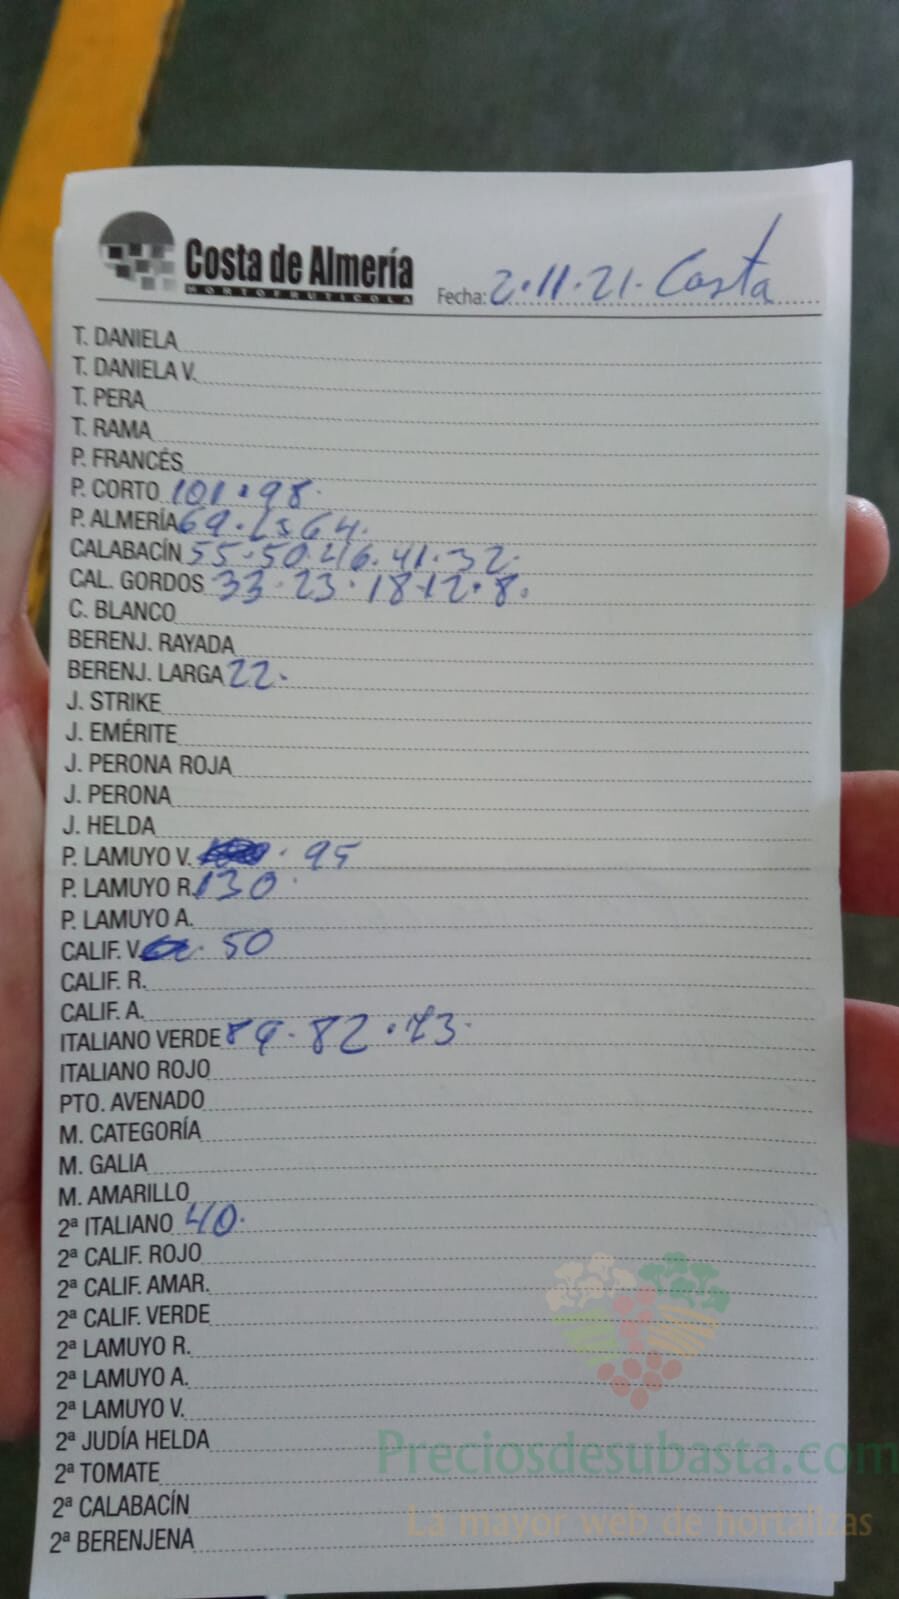 Costa de Almería
HORTOFRUTICOLA
Fecha: 2.11.21. Costa
T. DANIELA
T. DANIELA V.
T. PERA
T. RAMA
P. FRANCÉS
P. CORTO 101.98.
P. ALMERÍA 69. 64.
CALABACÍN 55.50.46.41.32.
CAL. GORDOS 33.23.18.12.8.
C. BLANCO
BERENJ. RAYADA
BERENJ. LARGA 22.
J. STRIKE
J. EMÉRITE
J. PERONA ROJA
J. PERONA
J. HELDA
P. LAMUYO V. . 95
P. LAMUYO R. 130.
P. LAMUYO A.
CALIF. V. . 50
CALIF. R.
CALIF. A.
ITALIANO VERDE 89.82.73.
ITALIANO ROJO
PTO. AVENADO
M. CATEGORÍA
M. GALIA
M. AMARILLO
2ª ITALIANO 40.
2ª CALIF. ROJO
2ª CALIF. AMAR.
2ª CALIF. VERDE
2ª LAMUYO R.
2ª LAMUYO A.
2ª LAMUYO V.
2ª JUDÍA HELDA
2ª TOMATE
2ª CALABACÍN
2ª BERENJENA
Preciosdesubasta.com
La mayor web de hortalizas